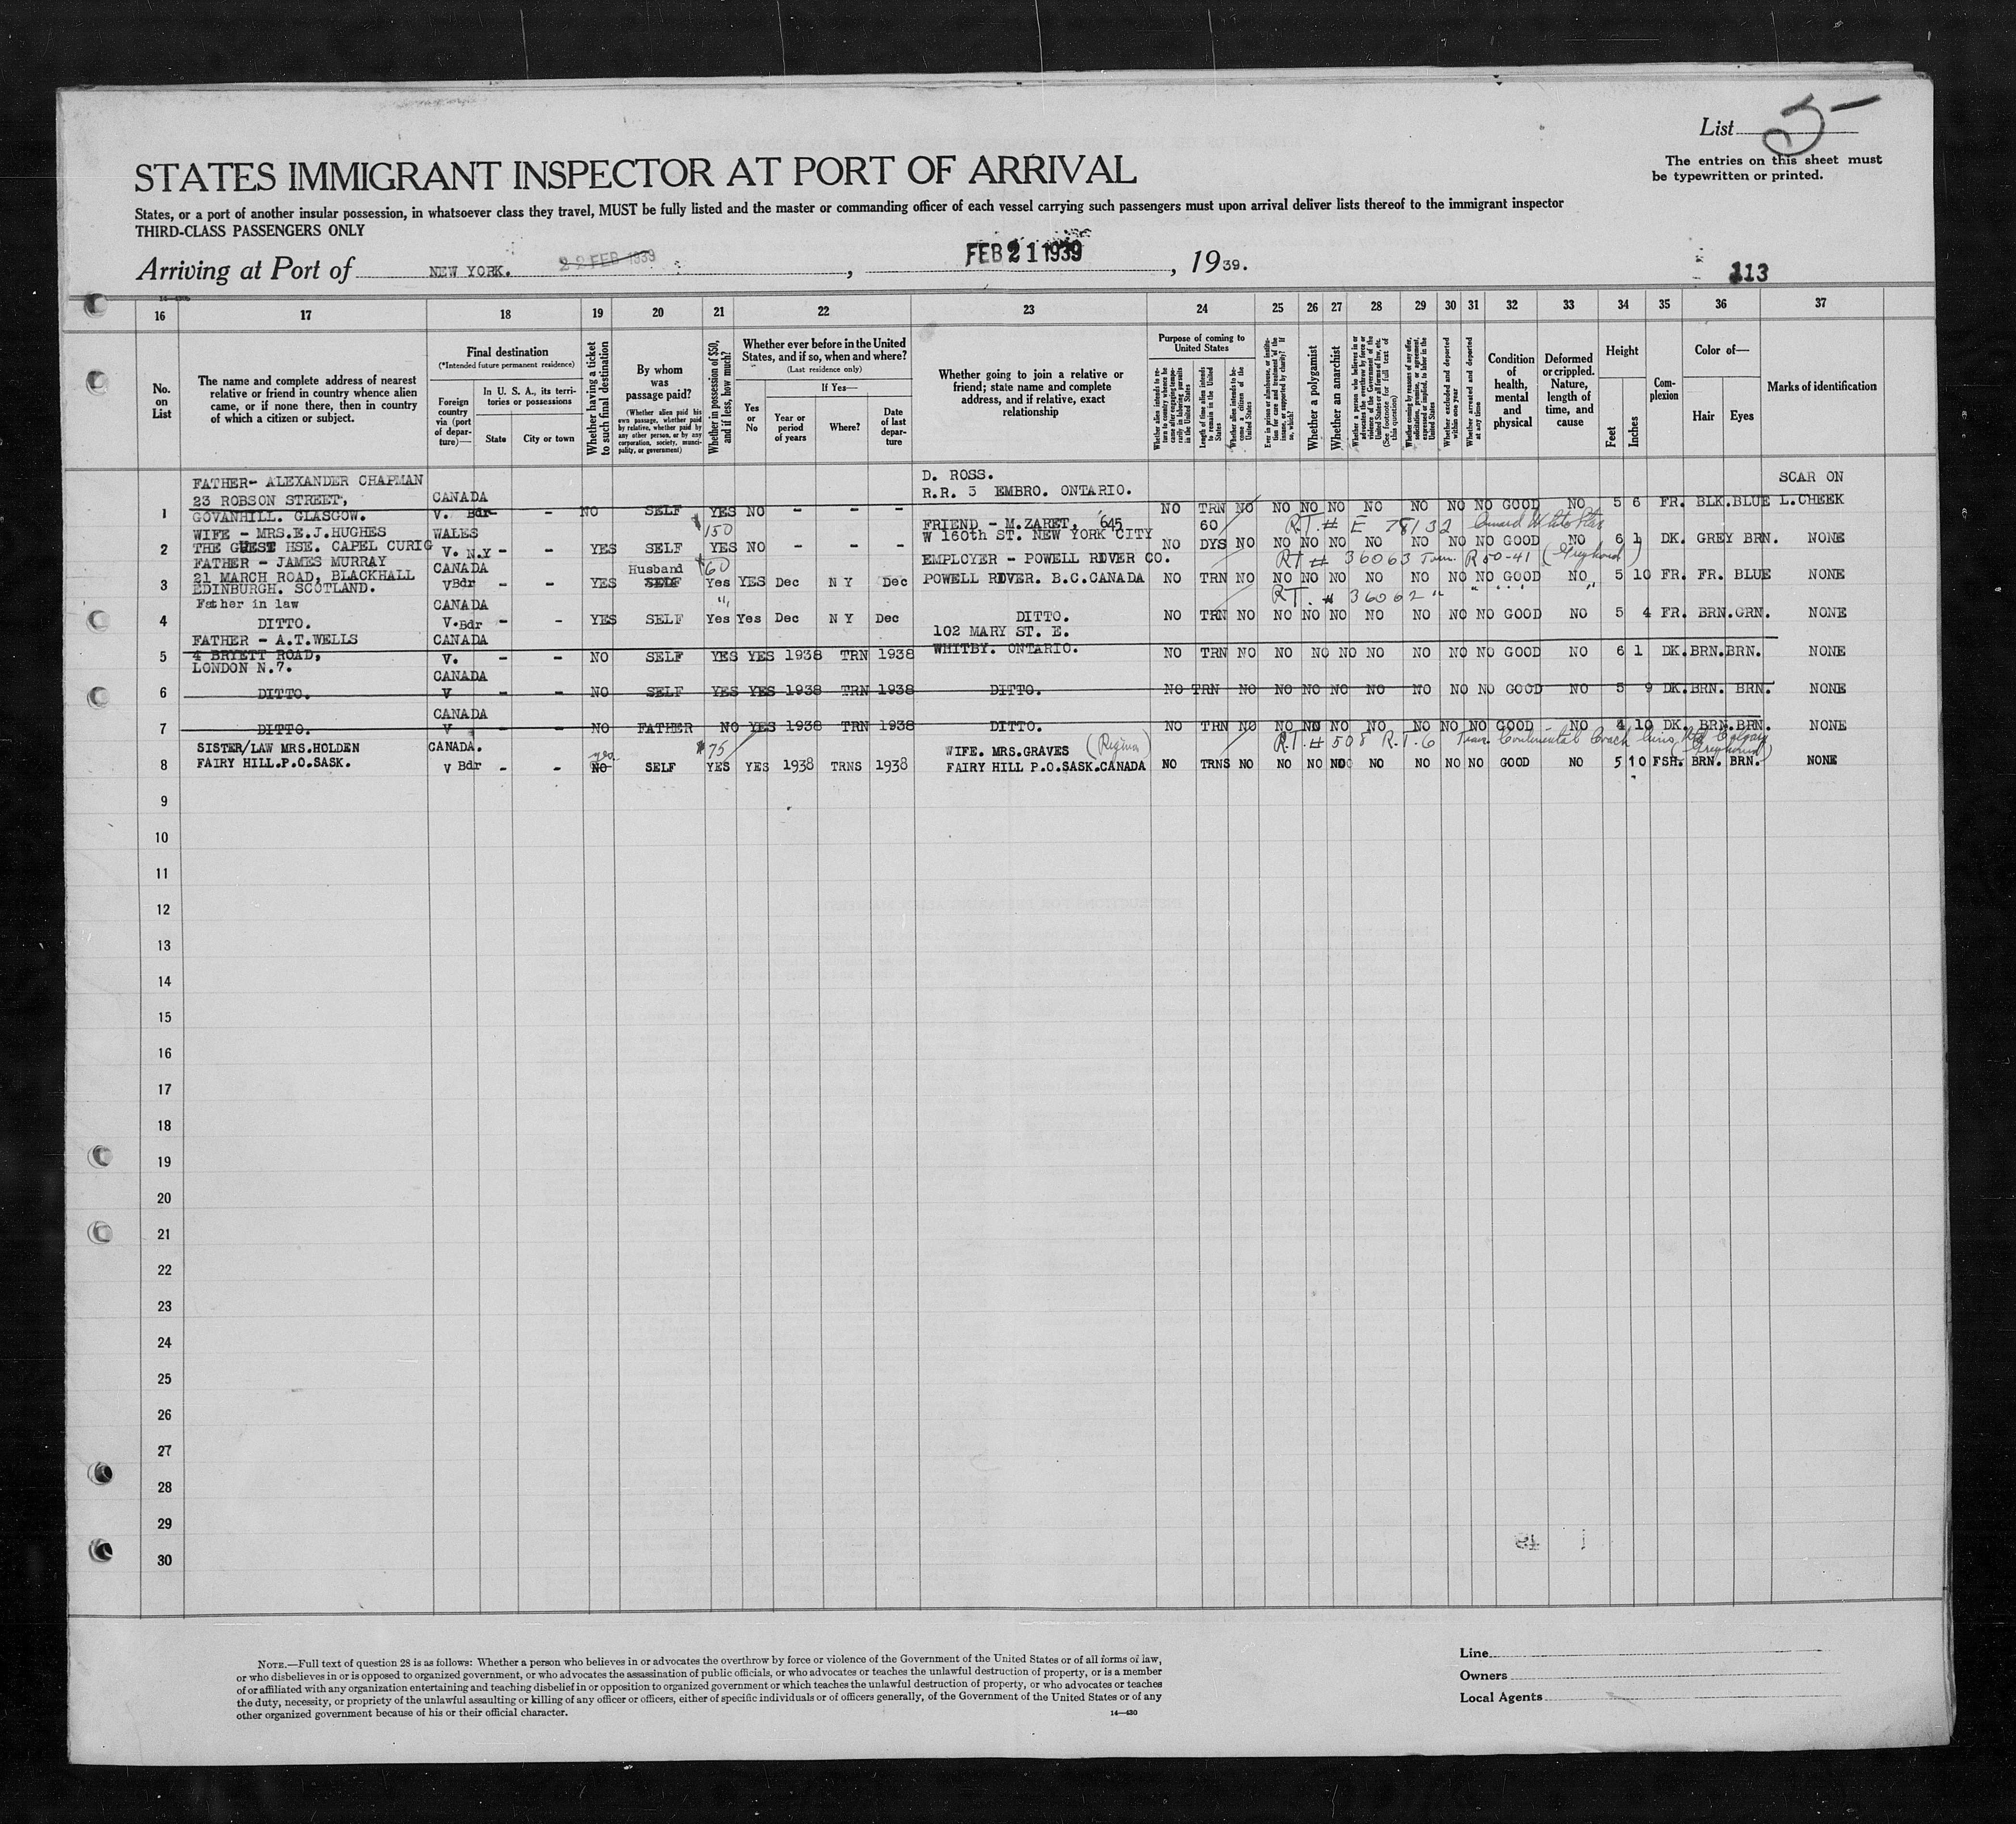 List 5
The entries on this sheet must
be typewritten or printed.
STATES IMMIGRANT INSPECTOR AT PORT OF ARRIVAL
States, or a port of another insular possession, in whatsoever class they travel, MUST be fully listed and the master or commanding officer of each vessel carrying such passengers must upon arrival deliver lists thereof to the immigrant inspector
THIRD-CLASS PASSENGERS ONLY
Arriving at Port of NEW YORK. 22 FEB 1939, FEB 21 1939, 1939.
113
16 17 18 19 20 21 22 23 24 25 26 27 28 29 30 31 32 33 34 35 36 37
No. on List
The name and complete address of nearest relative or friend in country whence alien came, or if none there, then in country of which a citizen or subject.
Final destination
(*Intended future permanent residence)
Foreign country via (port of departure)—
In U. S. A., its territories or possessions
State
City or town
Whether having a ticket to such final destination
By whom was passage paid?
(Whether alien paid his own passage, whether paid by relative, whether paid by any other person, or by any corporation, society, municipality, or government)
Whether in possession of $50, and if less, how much?
Whether ever before in the United States, and if so, when and where?
(Last residence only)
Yes or No
If Yes—
Year or period of years
Where?
Date of last departure
Whether going to join a relative or friend; state name and complete address, and if relative, exact relationship
Purpose of coming to United States
Whether alien intends to return to country whence he came after engaging temporarily in laboring pursuits in the United States
Length of time alien intends to remain in the United States
Whether alien intends to become a citizen of the United States
Ever in prison or almshouse, or institution for care and treatment of the insane, or supported by charity? If so, which?
Whether a polygamist
Whether an anarchist
Whether a person who believes in or advocates the overthrow by force or violence of the Government of the United States or all forms of law, etc. (See footnote for full text of this question)
Whether coming by reasons of any offer, solicitation, promise, or agreement, expressed or implied, to labor in the United States
Whether excluded and deported within one year
Whether arrested and deported at any time
Condition of health, mental and physical
Deformed or crippled. Nature, length of time, and cause
Height
Feet
Inches
Complexion
Color of—
Hair
Eyes
Marks of identification
FATHER- ALEXANDER CHAPMAN D. ROSS. SCAR ON
23 ROBSON STREET, CANADA R.R. 3 EMBRO. ONTARIO.
1 GOVANHILL. GLASGOW. V. Bdr - - NO SELF YES NO - - - NO TRN NO NO NO NO NO NO NO NO GOOD NO 5 6 FR. BLK. BLUE L.CHEEK
WIFE - MRS.E.J.HUGHES WALES $150 FRIEND - M.ZARET, 645 60 R.T. # E 78132 Cunard White Star
2 THE GUEST HSE. CAPEL CURIG V. N.Y - - YES SELF YES NO - - - W 160th ST. NEW YORK CITY NO DYS NO NO NO NO NO NO NO NO GOOD NO 6 1 DK. GREY BRN. NONE
FATHER - JAMES MURRAY CANADA Husband $60 EMPLOYER - POWELL RIVER CO. RT # 36063 Tran. R 50-41 (Greyhound)
3 21 MARCH ROAD, BLACKHALL VBdr - - YES SELF Yes YES Dec N Y Dec POWELL RIVER. B.C.CANADA NO TRN NO NO NO NO NO NO NO NO GOOD NO 5 10 FR. FR. BLUE NONE
EDINBURGH. SCOTLAND.
Father in law CANADA " RT. # 36062 " " " "
4 DITTO. V.Bdr - - YES SELF Yes Yes Dec N Y Dec DITTO. NO TRN NO NO NO NO NO NO NO NO GOOD NO 5 4 FR. BRN. GRN. NONE
FATHER - A.T.WELLS CANADA 102 MARY ST. E.
5 4 BRYETT ROAD, V. - - NO SELF YES YES 1938 TRN 1938 WHITBY. ONTARIO. NO TRN NO NO NO NO NO NO NO NO GOOD NO 6 1 DK. BRN. BRN. NONE
LONDON N.7.
CANADA
6 DITTO. V - - NO SELF YES YES 1938 TRN 1938 DITTO. NO TRN NO NO NO NO NO NO NO NO GOOD NO 5 9 DK. BRN. BRN. NONE
CANADA
7 DITTO. V - - NO FATHER NO YES 1938 TRN 1938 DITTO. NO TRN NO NO NO NO NO NO NO NO GOOD NO 4 10 DK. BRN. BRN. NONE
SISTER/LAW MRS.HOLDEN CANADA. yes $75 WIFE. MRS.GRAVES (Regina) R.T. # 508 R.T-6 Trans Continental Coach Lines Ltd Calgary (Greyhound)
8 FAIRY HILL.P.O.SASK. V Bdr - - NO SELF YES YES 1938 TRNS 1938 FAIRY HILL P.O.SASK.CANADA NO TRNS NO NO NO NO NO NO NO NO GOOD NO 5 10 FSH. BRN. BRN. NONE
9
10
11
12
13
14
15
16
17
18
19
20
21
22
23
24
25
26
27
28
29
30
NOTE.—Full text of question 28 is as follows: Whether a person who believes in or advocates the overthrow by force or violence of the Government of the United States or of all forms of law,
or who disbelieves in or is opposed to organized government, or who advocates the assassination of public officials, or who advocates or teaches the unlawful destruction of property, or is a member
of or affiliated with any organization entertaining and teaching disbelief in or opposition to organized government or which teaches the unlawful destruction of property, or who advocates or teaches
the duty, necessity, or propriety of the unlawful assaulting or killing of any officer or officers, either of specific individuals or of officers generally, of the Government of the United States or of any
other organized government because of his or their official character.
14—430
Line
Owners
Local Agents